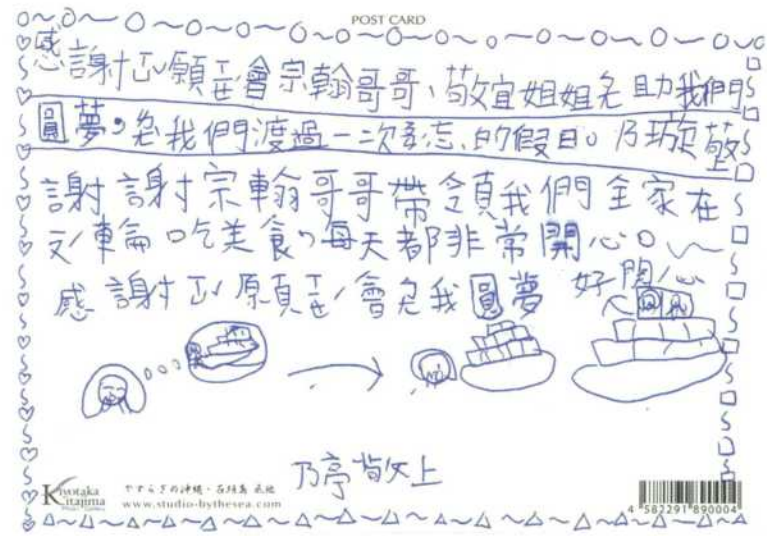 POST CARD
感謝 願 會宗翰哥哥、敬宜姐姐 助我們
圓夢，我們渡過一次 忘的假日。乃璇敬上
謝謝宗翰哥哥帶領我們全家在
輪吃美食，每天都非常開心。
感謝 願 會 我圓夢 好開心
乃亭 敬上
Kiyotaka
Kitajima
やすらぎの沖縄・石垣島
www.studio-bythesea.com
4 582291 890004